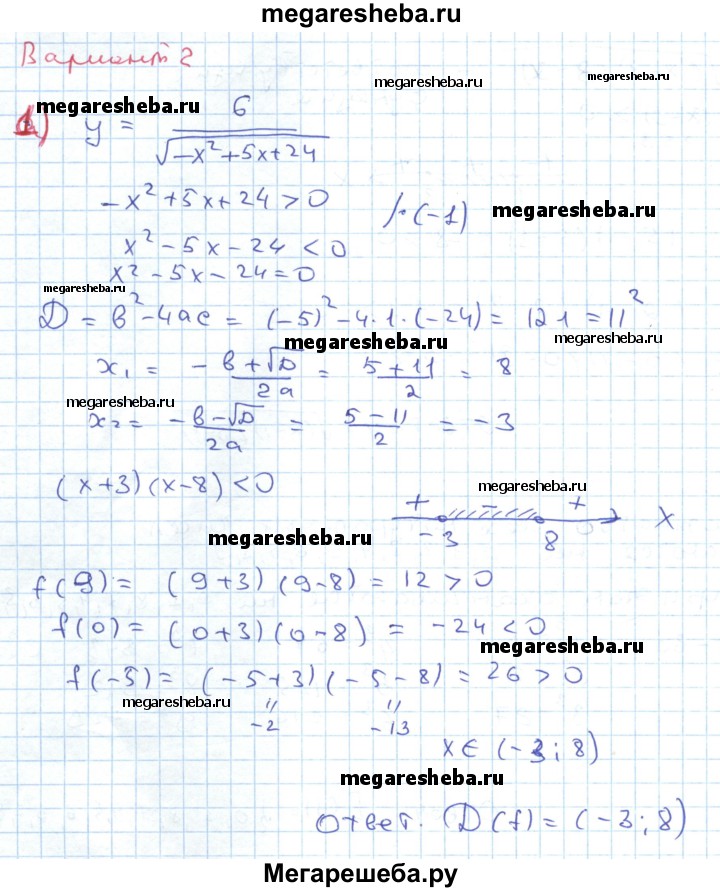 megaresheba.ru
Вариант 2
megaresheba.ru
megaresheba.ru
megaresheba.ru
1) y = 6 / √(-x² + 5x + 24)
-x² + 5x + 24 > 0 /·(-1)
megaresheba.ru
x² - 5x - 24 < 0
x² - 5x - 24 = 0
megaresheba.ru
D = b² - 4ac = (-5)² - 4·1·(-24) = 121 = 11².
megaresheba.ru
megaresheba.ru
x₁ = -b+√D / 2a = 5+11 / 2 = 8
megaresheba.ru
x₂ = -b-√D / 2a = 5-11 / 2 = -3
(x+3)(x-8) < 0
megaresheba.ru
+ - + x
-3 8
megaresheba.ru
f(9) = (9+3)(9-8) = 12 > 0
f(0) = (0+3)(0-8) = -24 < 0
megaresheba.ru
f(-5) = (-5+3)(-5-8) = 26 > 0
megaresheba.ru
-2 -13
x ∈ (-3; 8)
megaresheba.ru
ответ. D(f) = (-3; 8)
Мегарешеба.ру